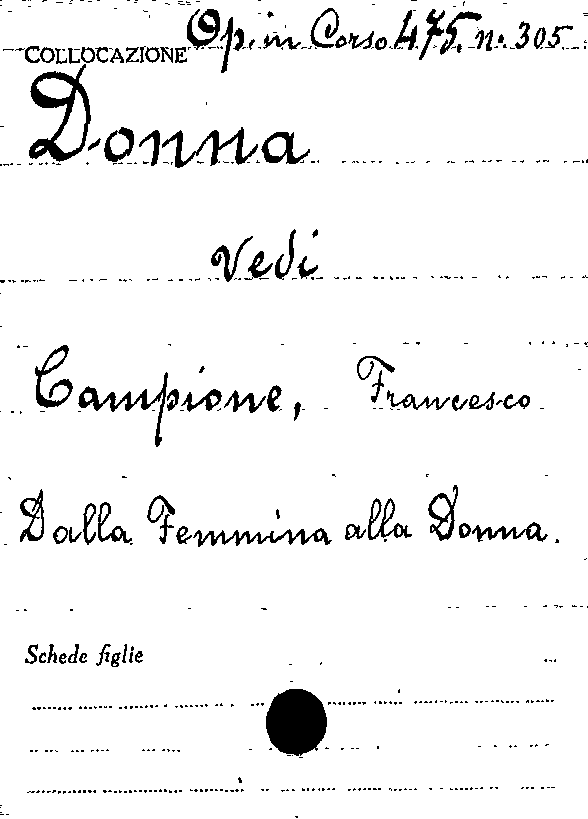 COLLOCAZIONE Op. in Corso 475. n. 305
Donna
Vedi
Campione, Francesco
Dalla Femmina alla Donna.
Schede figlie